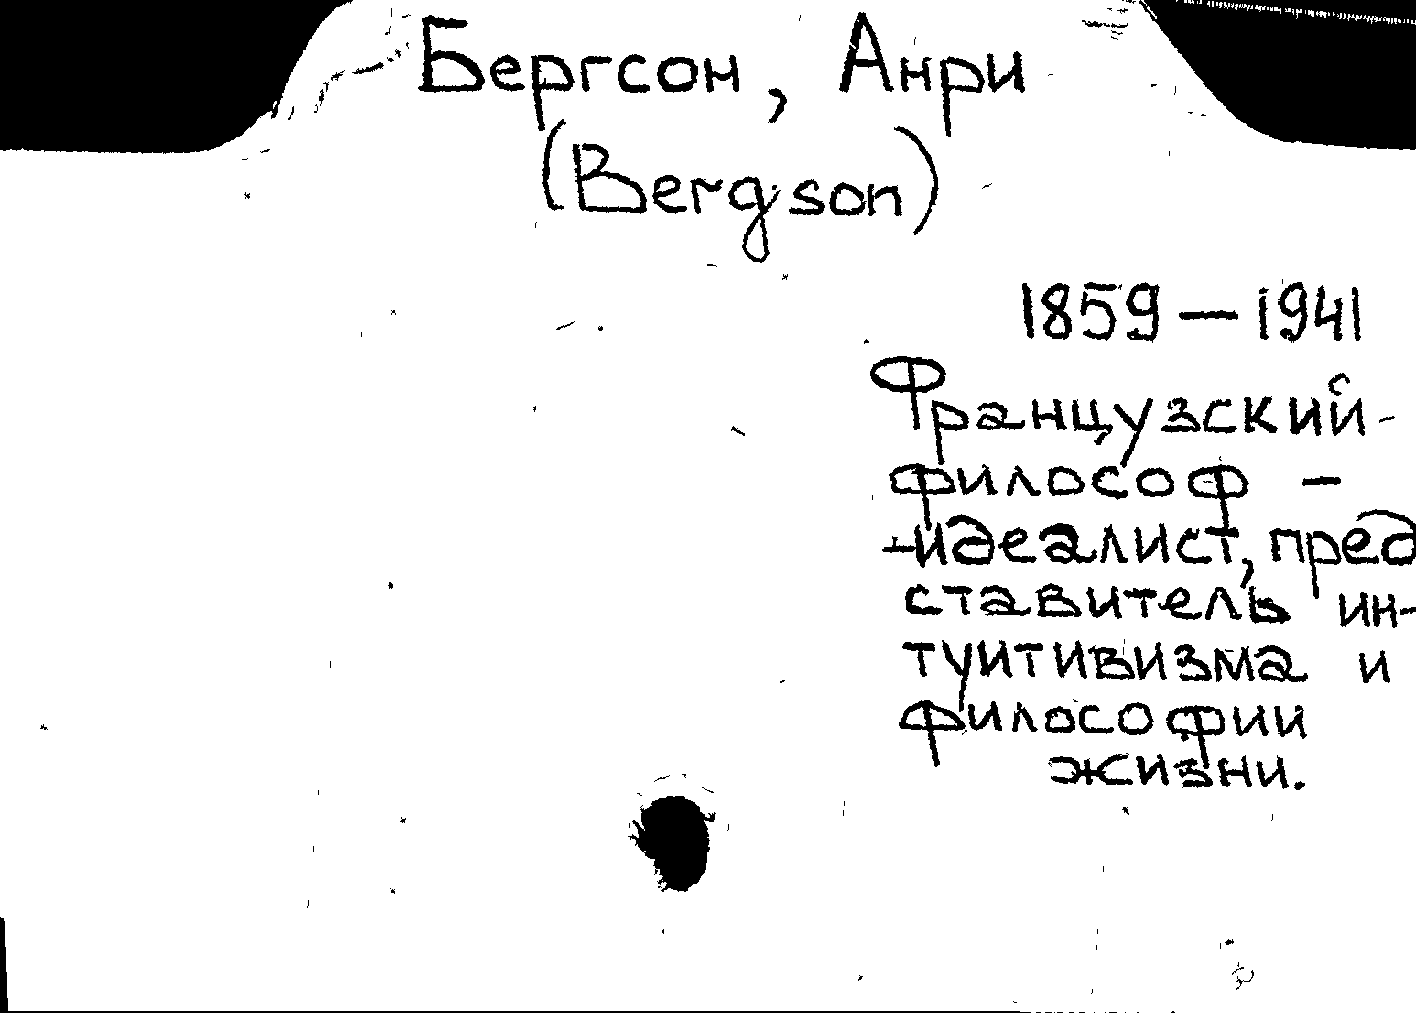 Бергсон, Анри
(Bergson)
1859 — 1941
Французский
философ –
-идеалист, пред
ставитель ин-
туитивизма и
философии
жизни.